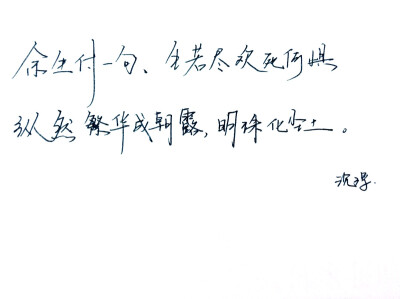 余生付一句、生若尽欢死何惧
纵然繁华成朝露,明珠化尘土。